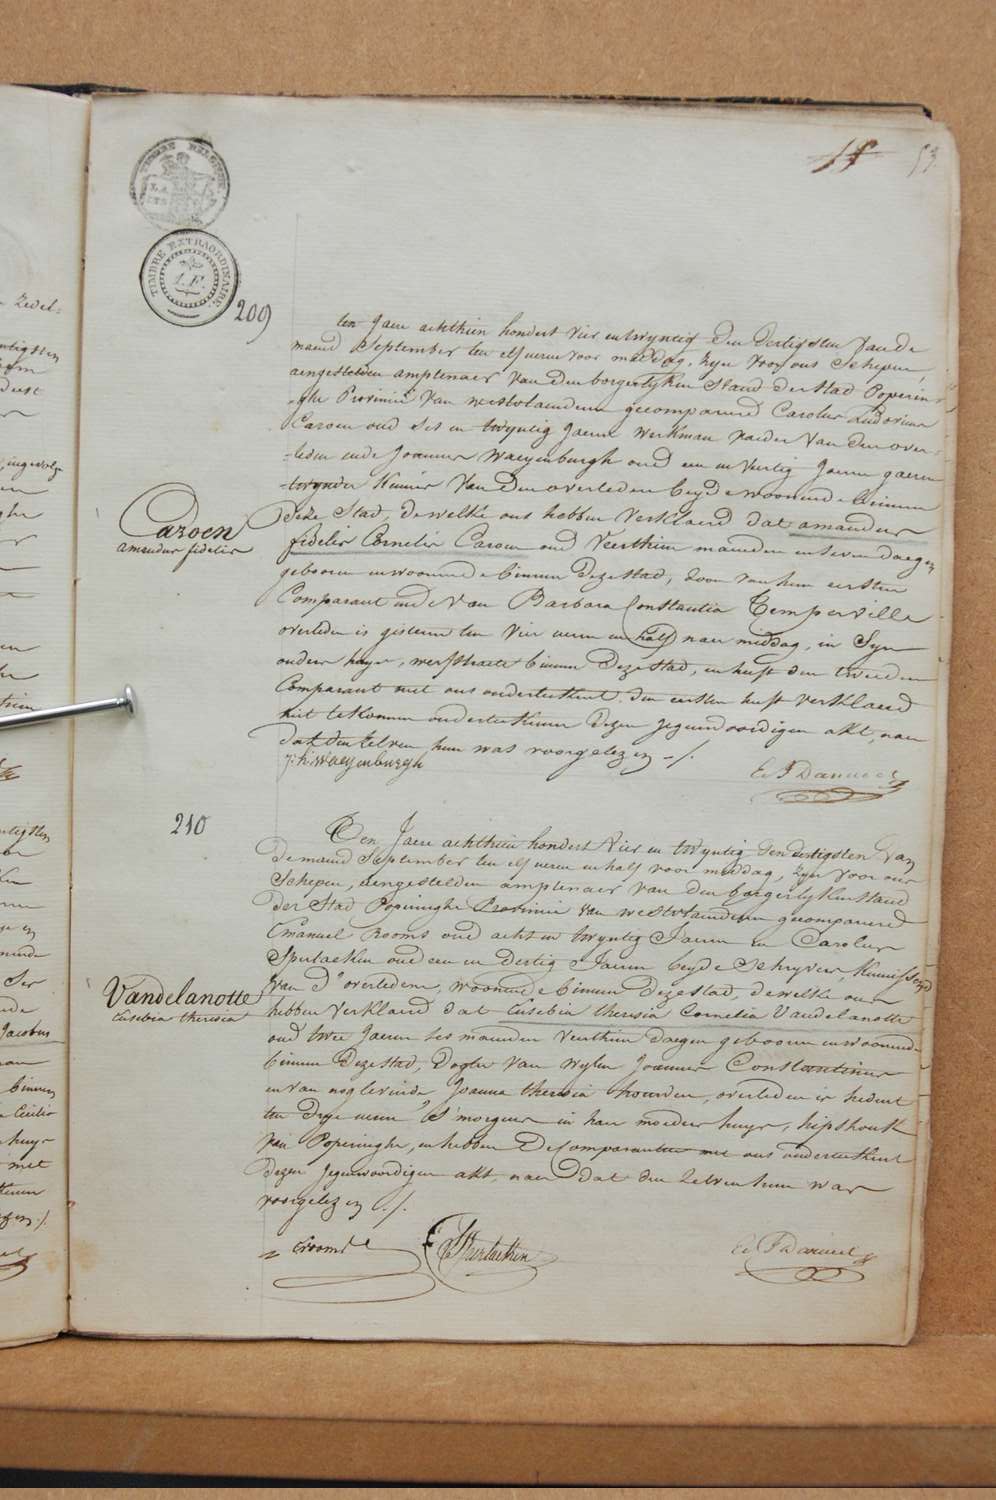 TIMBRE BELGIQUE
TIMBRE EXTRAORDINAIRE
1.F.
53
209
ten Jaere achthien hondert vier en twyntig den dertigsten van de
maend September ten elf ueren voor middag, zyn voor ons Schepen,
aengestelden amptenaer van den borgerlyken Stand der Stad Poperin-
-ghe Provincie van westvlaenderen gecompareerd Carolus Ludovicus
Caroen oud ses en twyntig Jaeren werkman vaeder van den over-
-leden ende Joannes Waeyenburgh oud een en veertig Jaeren gaeren
-twynder kennis van den overleden beyde woonende binnen
deze Stad, dewelke ons hebben verklaerd dat amandus
fidelis Cornelis Caroen oud veerthien maenden en seven daegen
geboren en woonende binnen deze stad, zoon van hun eersten
Comparant ende van Barbara Constantia Temperville
overleden is gisteren ten vier ueren en half naer middag, in Syn
ouders huys, straete binnen deze Stad, en heeft den tweeden
Comparant met ons onderteekent. den eersten heeft verklaerd
niet te konnen onderteekenen dezen jegenwoordigen akt, naer
dat den zelven hun was voorgelezen -/.
Cazoen
amandus fidelis
j: b: waeyenburgh
210
Ten Jaere achthien hondert vier en twyntig den dertigsten van
de maend September ten elf ueren en half voor middag, zyn voor ons
Schepen, aengestelden amptenaer van den borgerlyken stand
der Stad Poperinghe Provincie van westvlaenderen gecompareerd
Emanuel Rooms oud acht en twyntig Jaeren en Carolus
Spillaekin oud een en dertig Jaeren beyde Schryvers, kennissen
van d'overledene, woonende binnen deze stad, dewelke ons
hebben verklaerd dat Eusebia theresia Cornelia Vandelanotte
oud twee Jaeren ses maenden veerthien daegen geboren en woonende
binnen deze stad, dogter van wylen Joannes Constantinus
en van nog levende Joanna theresia, overleden is heden
ten drye ueren S'morgens in haer moeders huys, hipshoek
van Poperinghe, en hebben de Comparanten met ons onderteekent
dezen Jegenwoordigen akt, naer dat den zelven hun was
voorgelezen ./.
Vandelanotte
Eusebia theresia